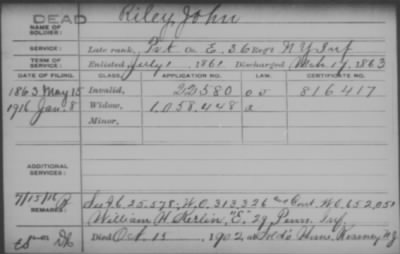 DEAD
NAME OF SOLDIER: Riley, John
SERVICE: Late rank, Pvt Co. E, 36 Regt N Y Inf
TERM OF SERVICE: Enlisted July 1, 1861 Discharged Mch 17, 1863
DATE OF FILING. CLASS. APPLICATION NO. LAW. CERTIFICATE NO.
1863 May 15 Invalid, 22580 816417
1916 Jan. 8 Widow, 1,058,448
Minor,
ADDITIONAL SERVICES:
7/15/16 See 25,578. W.O. 313,326 Cert. W.C. 652,051
REMARKS: William H Kerlin, "E", 29 Penn. Inf.
Died Oct. 15, 1902, at Sold's Home, Kearney N J